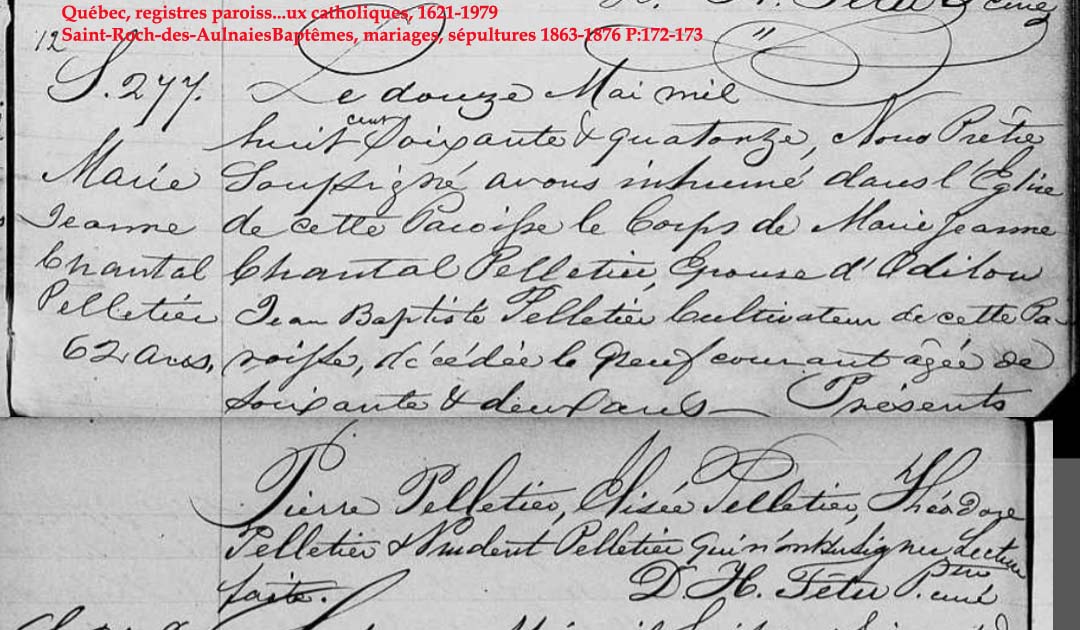 Québec, registres paroiss...ux catholiques, 1621-1979
Saint-Roch-des-AulnaiesBaptêmes, mariages, sépultures 1863-1876 P:172-173
12
S. 277.
Marie
Jeanne
Chantal
Pelletier
62 ans,
Le douze Mai mil
huit cent Soixante & quatorze, Nous Prêtre
Soussigné avons inhumé dans l'Eglise
de cette Paroisse le Corps de Marie Jeanne
Chantal Pelletier, Epouse d'Odilon
Jean Baptiste Pelletier Cultivateur de cette Pa-
roisse, décédée le neuf courant âgée de
soixante & deux ans — Présents
Pierre Pelletier, Elisée Pelletier, Théodore
Pelletier & Prudent Pelletier qui n'ont su signer Lecture
faite.
D. H. Têtu Ptre curé